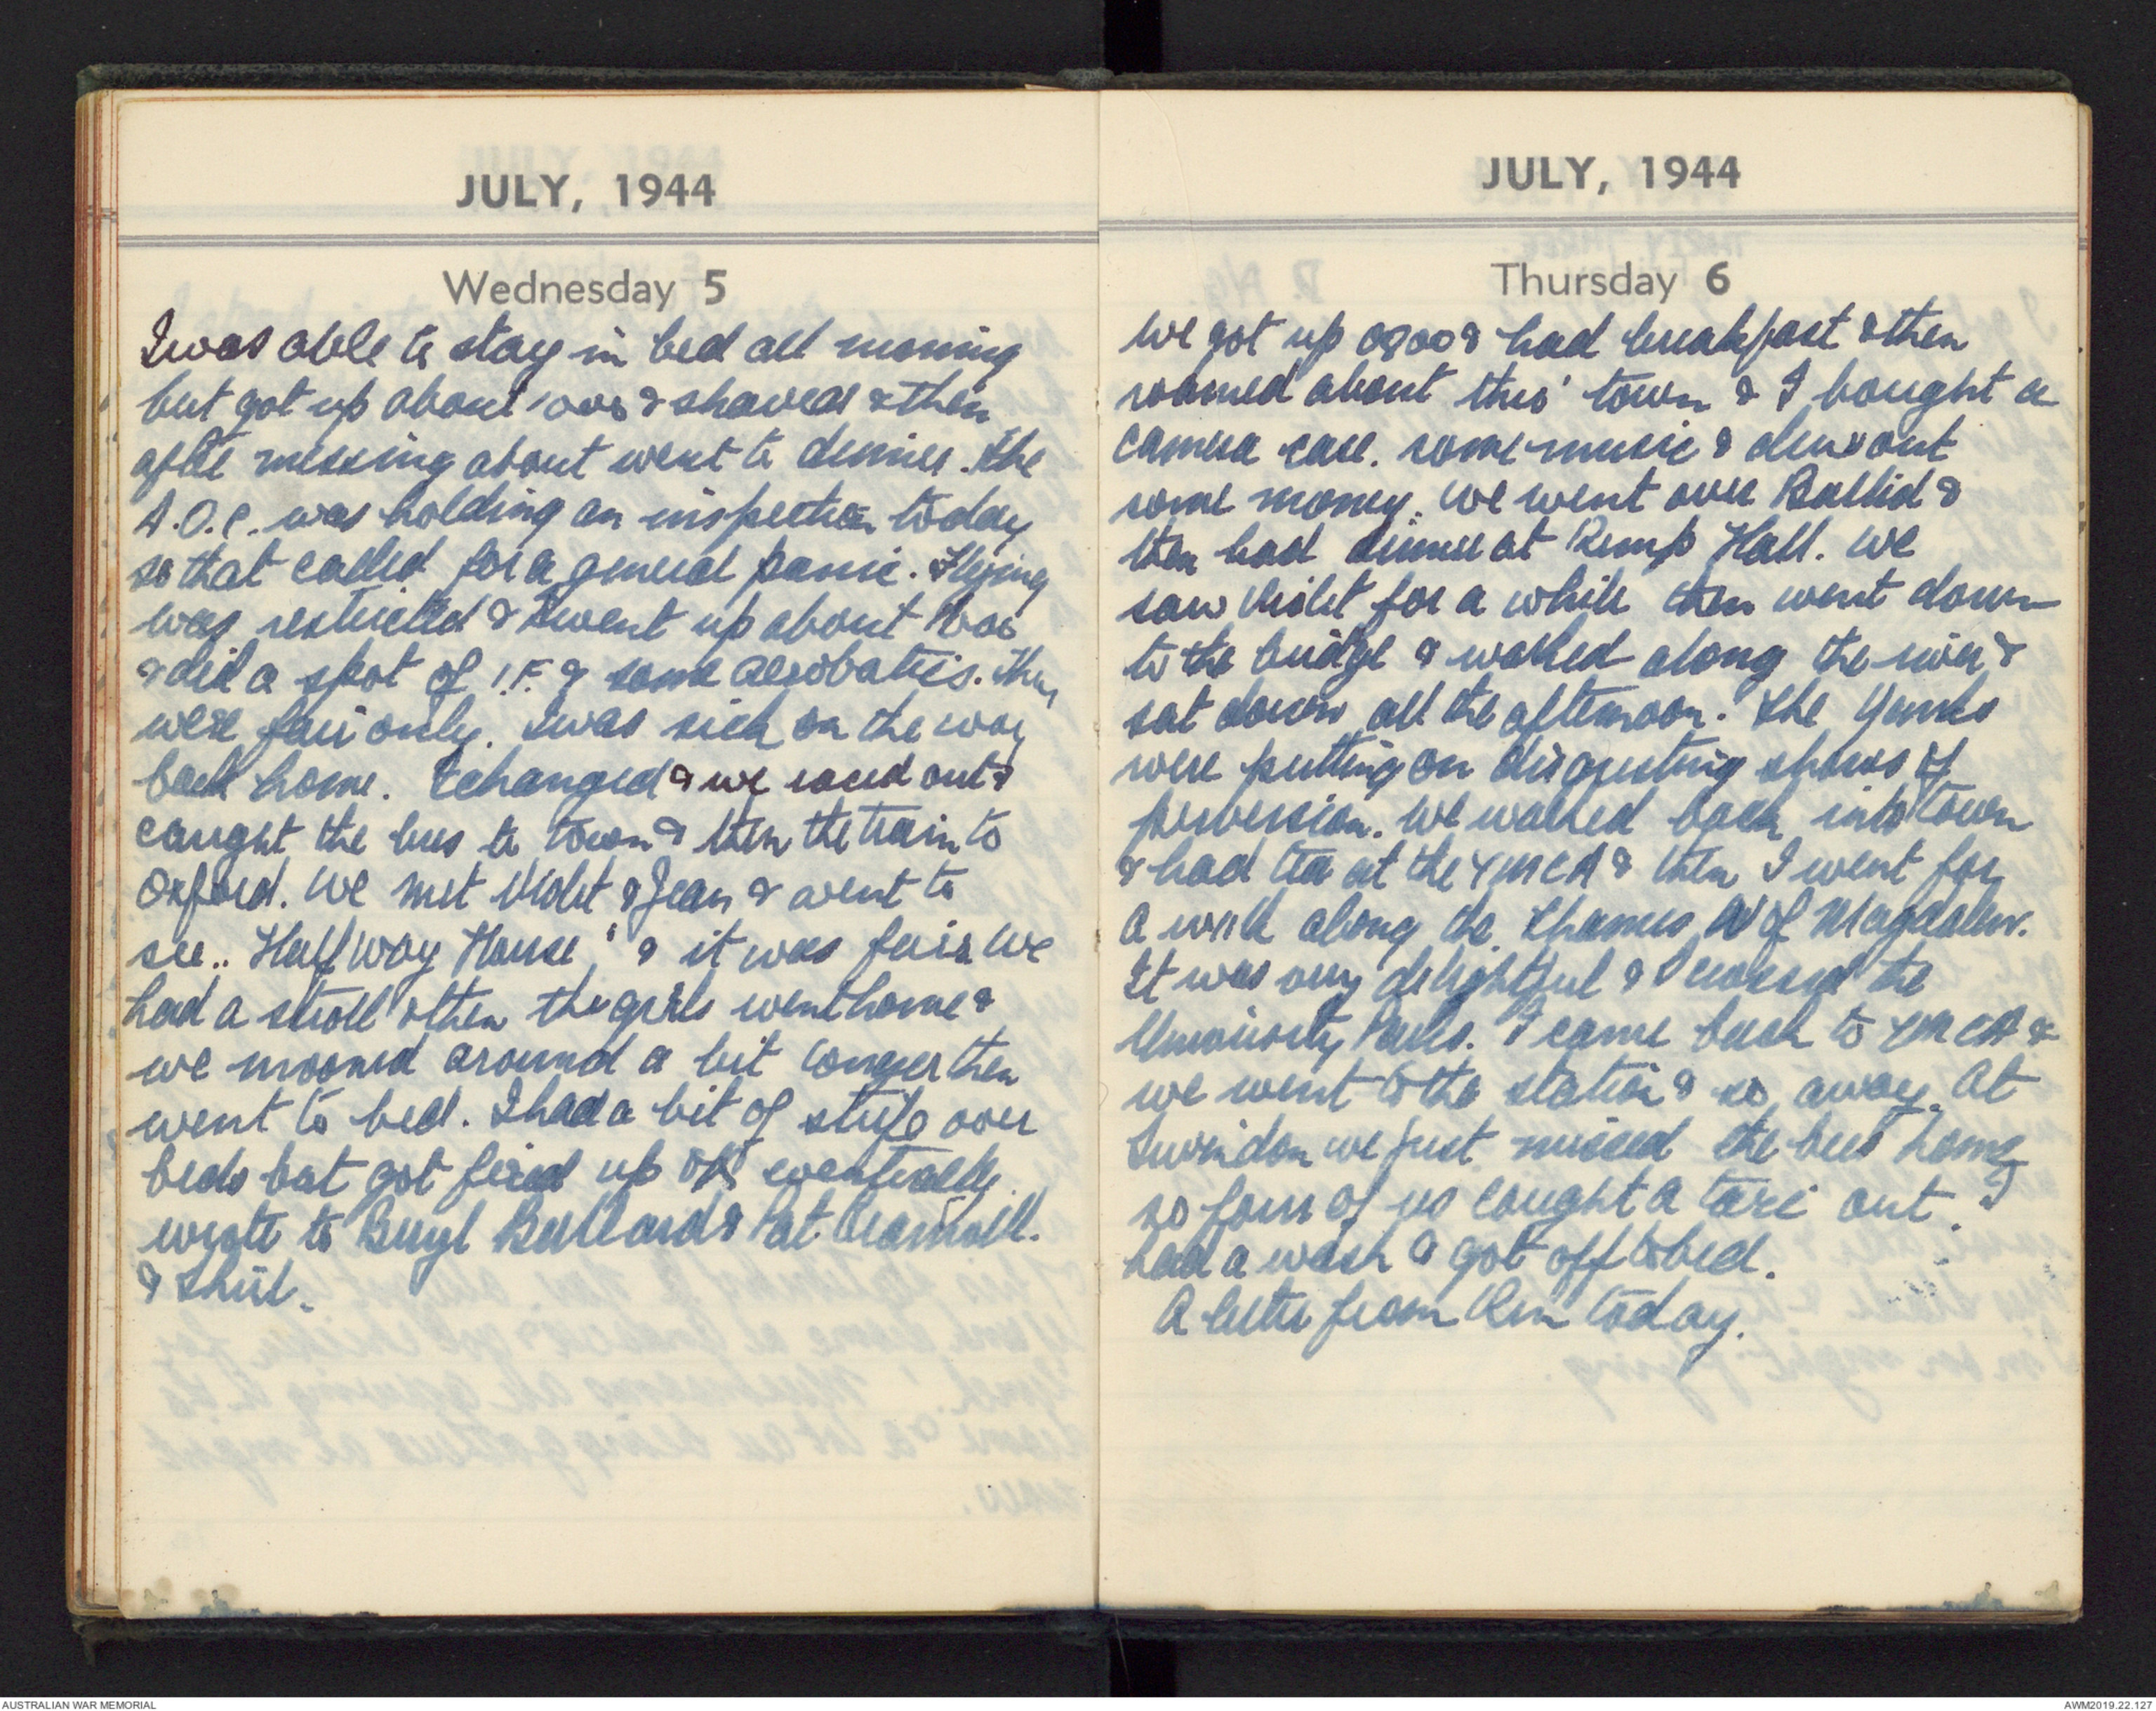 JULY, 1944
Wednesday 5
I was able to stay in bed all morning
but got up about 1000 & shaved & then
after messing about went to dinner. The
A.O.C. was holding an inspection today
so that called for a general panic. Flying
was restricted & I went up about
& did a spot of I.F. & some aerobatics. They
were fair only. I was sick on the way
back home. I changed & we raced out &
caught the bus to town & then the train to
Oxford. We met Violet & Jean & went to
see.. Halfway House' & it was fair. We
had a stroll & then the girls went home &
we mooned around a bit longer then
went to bed. I had a bit of strife over
beds but got fixed up OK eventually.
wrote to Beryl Bullard & Pat
& Shirl.
JULY, 1944
Thursday 6
We got up 0800 & had breakfast & then
roamed about this town & I bought a
camera case. some music & drew out
some money. We went over Balliol &
then had dinner at Kemp Hall. We
saw Violet for a while then went down
to the bridge & walked along the river &
sat down all the afternoon. The Yanks
were putting on disgusting shows of
perversion. We walked back into town
& had tea at the YMCA & then I went for
a walk along the Thames N of Magdalen.
It was very delightful & I crossed the
University Parks. I came back to YMCA &
we went to the station & so away. At
Swindon we just missed the bus home
so four of us caught a taxi out. I
had a wash & got off to bed.
A letter from today.
AUSTRALIAN WAR MEMORIAL
AWM2019.22.127